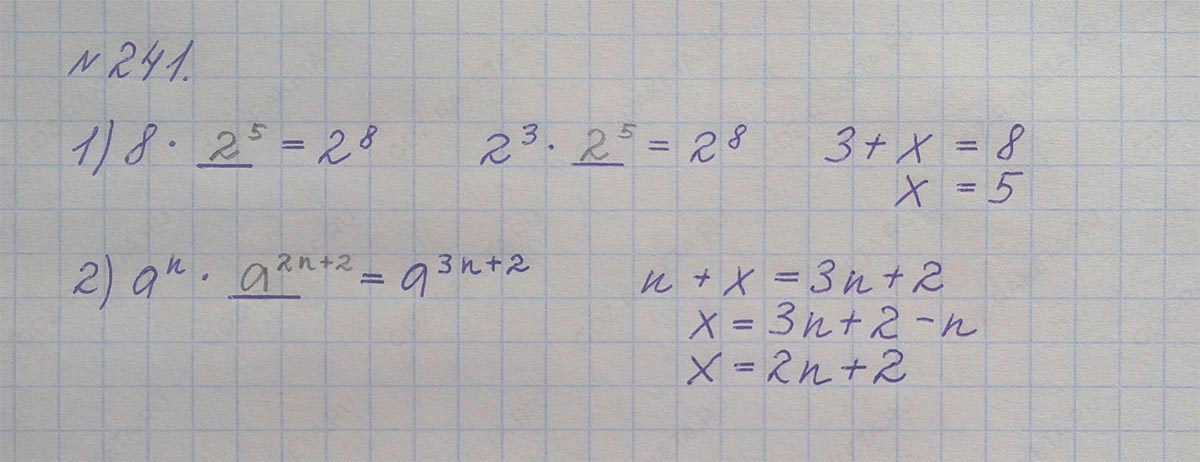 № 241.
1) 8 · 2⁵ = 2⁸ 2³ · 2⁵ = 2⁸ 3 + x = 8
x = 5
2) aⁿ · a²ⁿ⁺² = a³ⁿ⁺² n + x = 3n + 2
x = 3n + 2 - n
x = 2n + 2